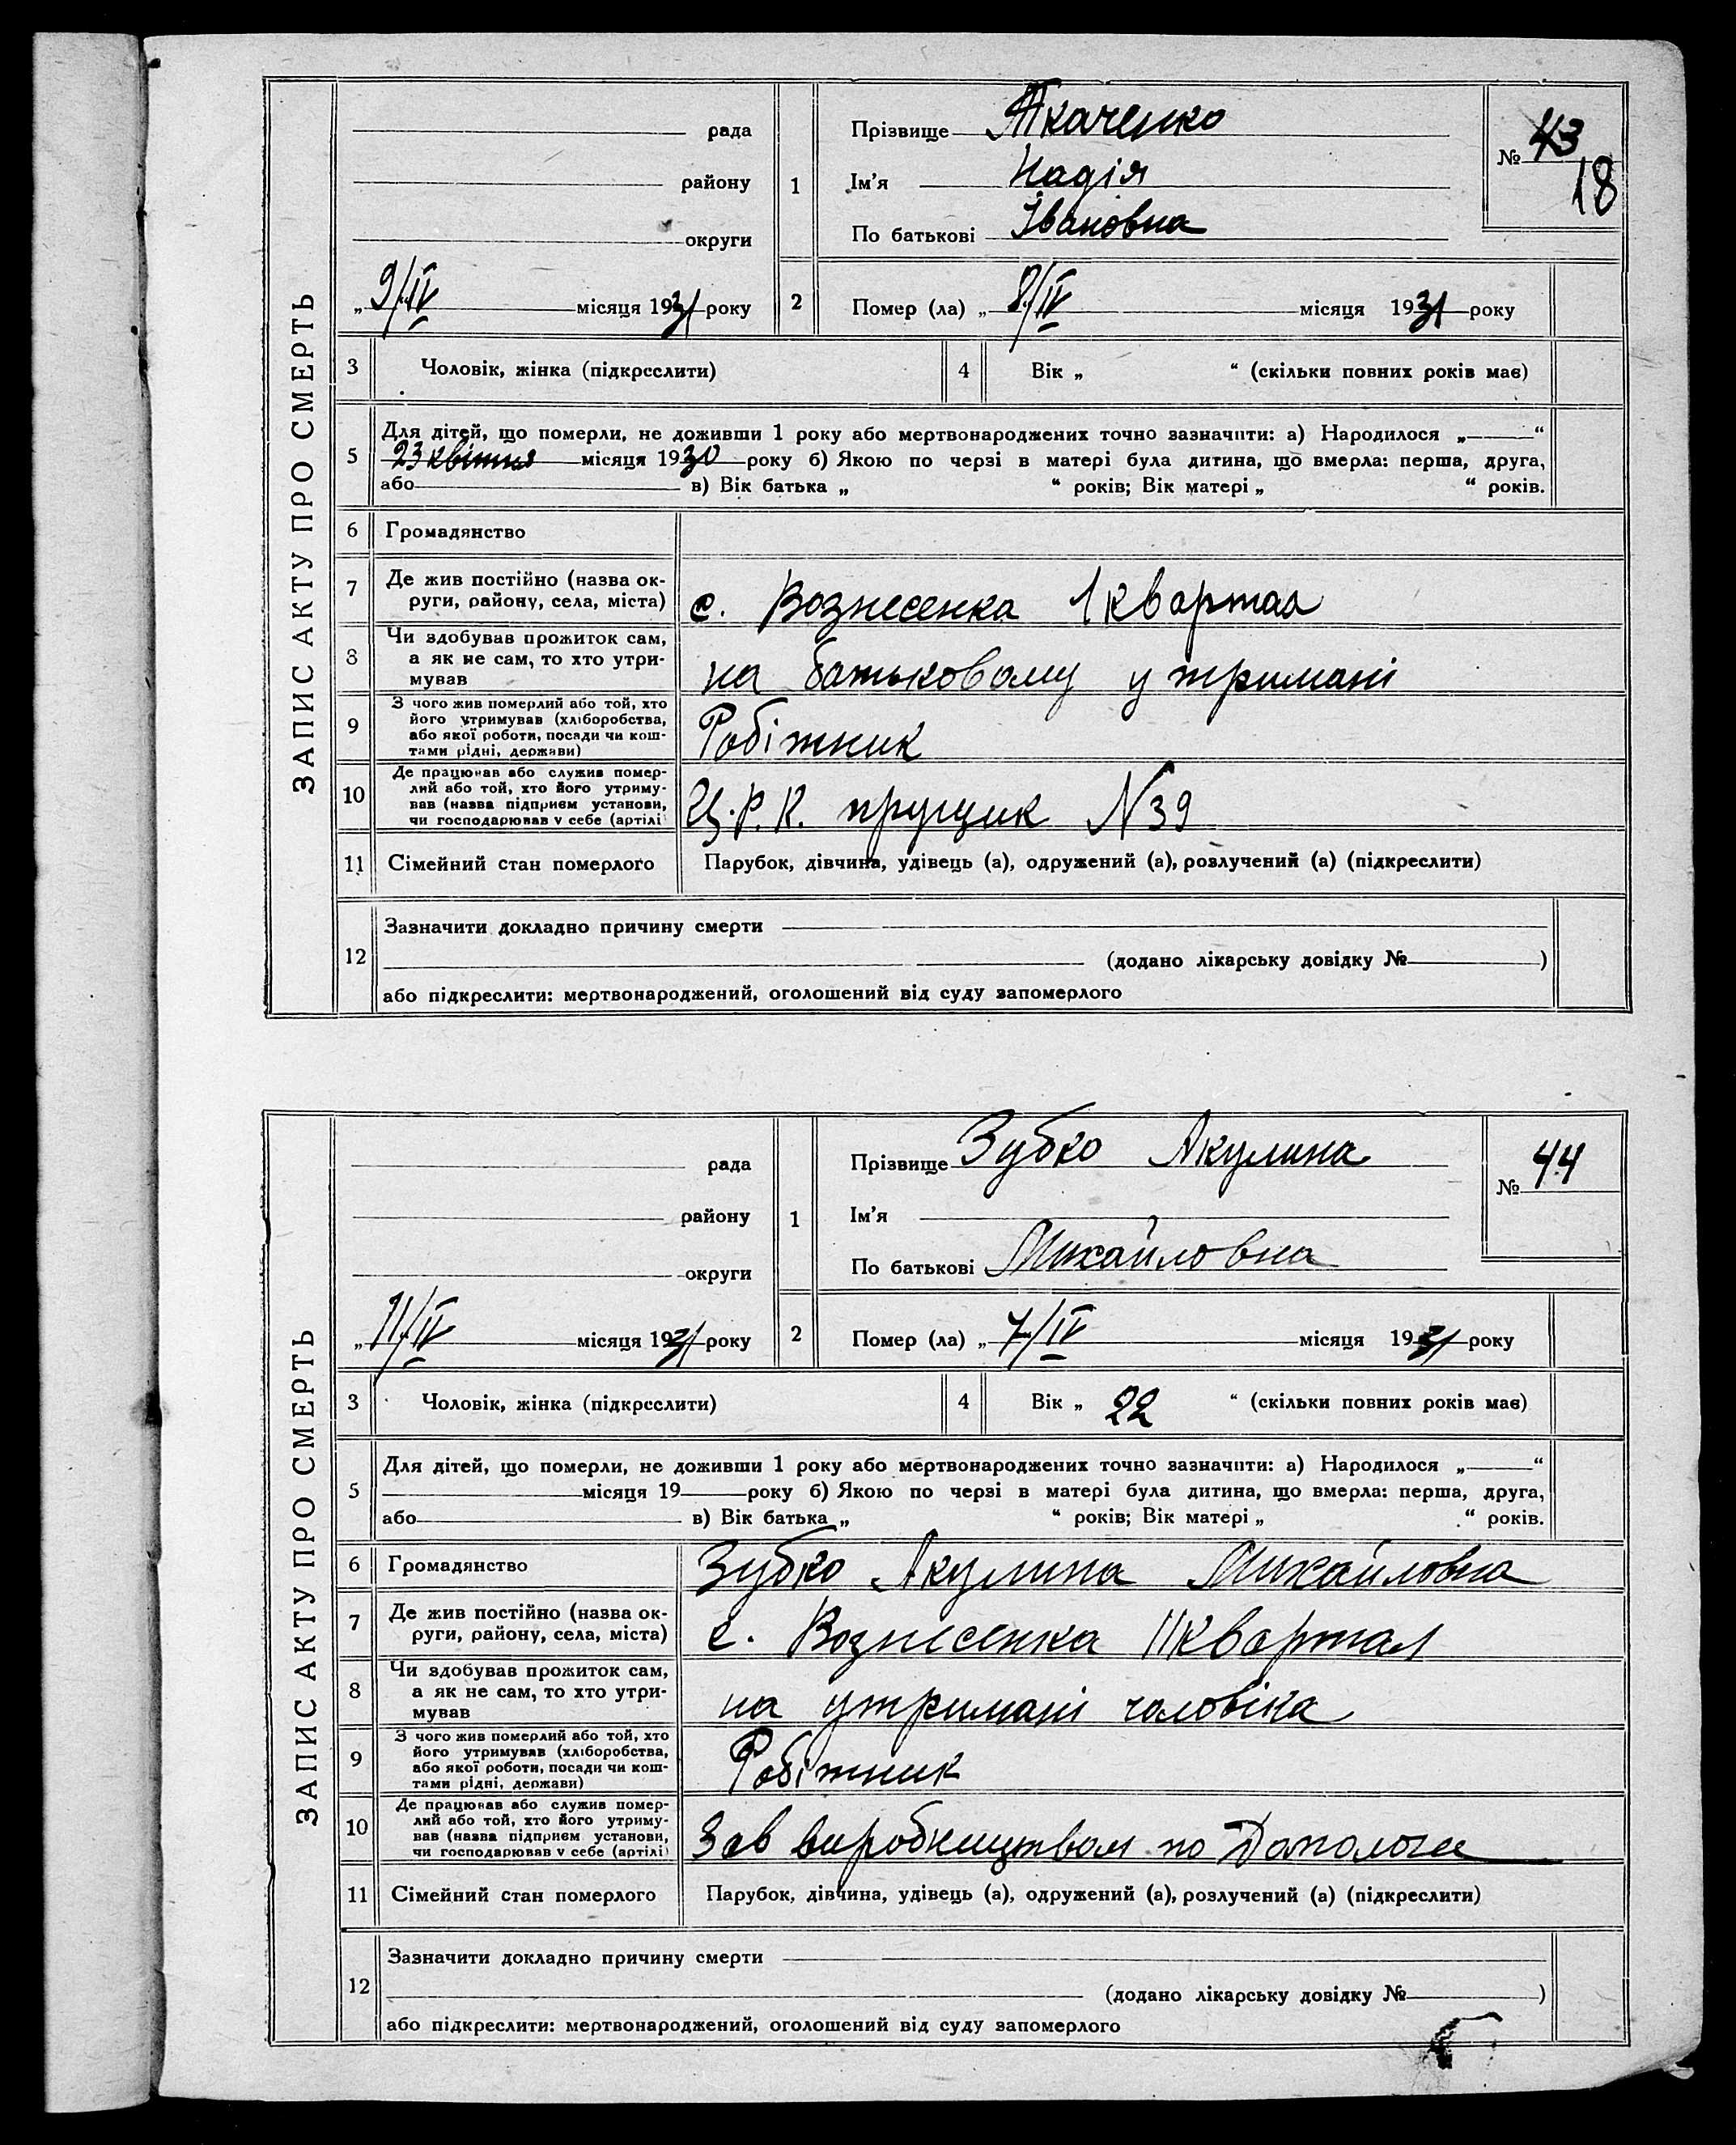 ЗАПИС АКТУ ПРО СМЕРТЬ
рада
району
округи
„ 9/IV місяця 1931 року
1 Прізвище Ткаченко
Ім'я Надія
По батькові Івановна
№ 43
18
2 Помер (ла) „ 8/IV місяця 1931 року
3 Чоловік, жінка (підкреслити)
4 Вік „ “ (скільки повних років має)
5 Для дітей, що померли, не доживши 1 року або мертвонароджених точно зазначити: а) Народилося „ “
23 квітня місяця 1930 року б) Якою по черзі в матері була дитина, що вмерла: перша, друга,
або в) Вік батька „ “ років; Вік матері „ “ років.
6 Громадянство
7 Де жив постійно (назва ок-
руги, району, села, міста) с. Вознесенка 1 квартал
8 Чи здобував прожиток сам,
а як не сам, то хто утри-
мував на батьковому утримані
9 З чого жив померлий або той, хто
його утримував (хліборобства,
або якої роботи, посади чи кош-
тами рідні, держави) Робітник
10 Де працював або служив помер-
лий або той, хто його утриму-
вав (назва підприєм установи,
чи господарював у себе (артілі Ц.Р.К. N 39
11 Сімейний стан померлого Парубок, дівчина, удівець (а), одружений (а), розлучений (а) (підкреслити)
12 Зазначити докладно причину смерти
(додано лікарську довідку № )
або підкреслити: мертвонароджений, оголошений від суду запомерлого
ЗАПИС АКТУ ПРО СМЕРТЬ
рада
району
округи
„ 11/IV місяця 1931 року
1 Прізвище Зубко Акулина
Ім'я
По батькові Михайловна
№ 44
2 Помер (ла) „ 7/IV місяця 1931 року
3 Чоловік, жінка (підкреслити)
4 Вік „ 22 “ (скільки повних років має)
5 Для дітей, що померли, не доживши 1 року або мертвонароджених точно зазначити: а) Народилося „ “
місяця 19 року б) Якою по черзі в матері була дитина, що вмерла: перша, друга,
або в) Вік батька „ “ років; Вік матері „ “ років.
6 Громадянство Зубко Акулина Михайловна
7 Де жив постійно (назва ок-
руги, району, села, міста) с. Вознесенка 11 квартал
8 Чи здобував прожиток сам,
а як не сам, то хто утри-
мував на утримані чоловіка
9 З чого жив померлий або той, хто
його утримував (хліборобства,
або якої роботи, посади чи кош-
тами рідні, держави) Робітник
10 Де працював або служив помер-
лий або той, хто його утриму-
вав (назва підприєм установи,
чи господарював у себе (артілі) Зав виробництвом по
11 Сімейний стан померлого Парубок, дівчина, удівець (а), одружений (а), розлучений (а) (підкреслити)
12 Зазначити докладно причину смерти
(додано лікарську довідку № )
або підкреслити: мертвонароджений, оголошений від суду запомерлого